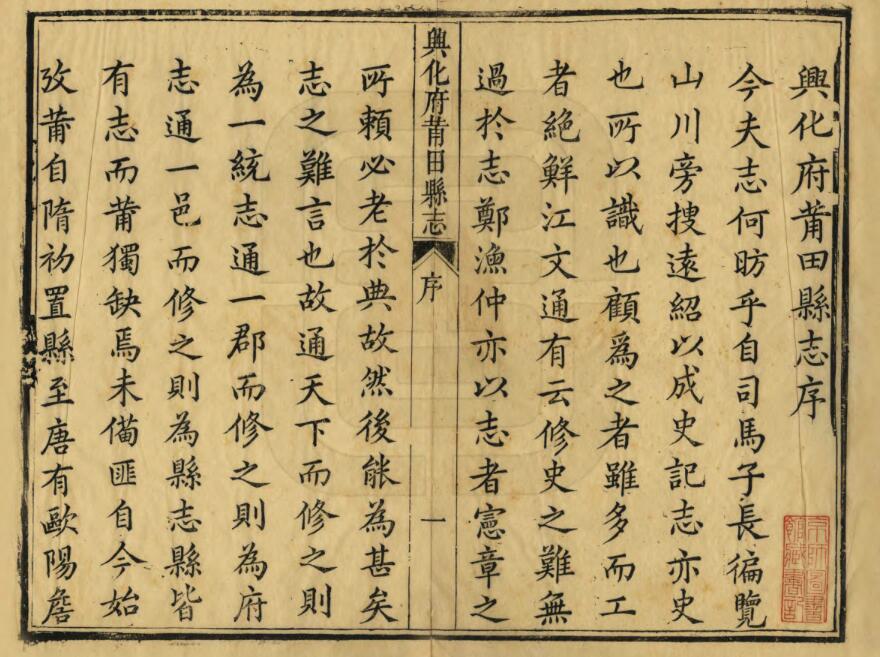 興化府莆田縣志序
今夫志何昉乎自司馬子長徧覽
山川旁搜遠紹以成史記志亦史
也所以識也顧為之者雖多而工
者絕鮮江文通有云修史之難無
過於志鄭漁仲亦以志者憲章之
興化府莆田縣志
序
一
所賴必老於典故然後能為甚矣
志之難言也故通天下而修之則
為一統志通一郡而修之則為府
志通一邑而修之則為縣志縣皆
有志而莆獨缺焉未備匪自今始
攷莆自隋初置縣至唐有歐陽詹
京師圖書
館藏書記